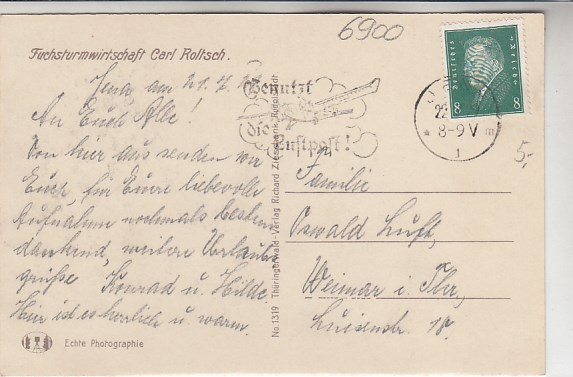 6900
Fuchsturmwirtschaft Carl Roltsch.
Jena, am 21. 7.
An Euch Alle!
Von hier aus senden wir
Euch für Eure liebevolle
Aufnahme nochmals bestens
dankend, weitere Urlaubs
grüße Konrad u. Hilde.
Hier ist es herrlich u. warm.
Echte Photographie
No. 1319 Thüringerwald-Verlag Richard Zieschank, Rudolstadt
Benutzt
die
Luftpost!
Deutsches Reich
8 8
22
8-9 V
1
5,-
Familie
Oswald Luft,
Weimar i. Thr,
Luisenstr. 18.